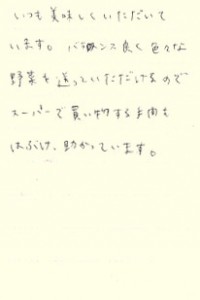 いつも美味しくいただいて
います。バランス良く色々な
野菜を送っていただけるので
スーパーで買い物する手間も
はぶけ、助かっています。